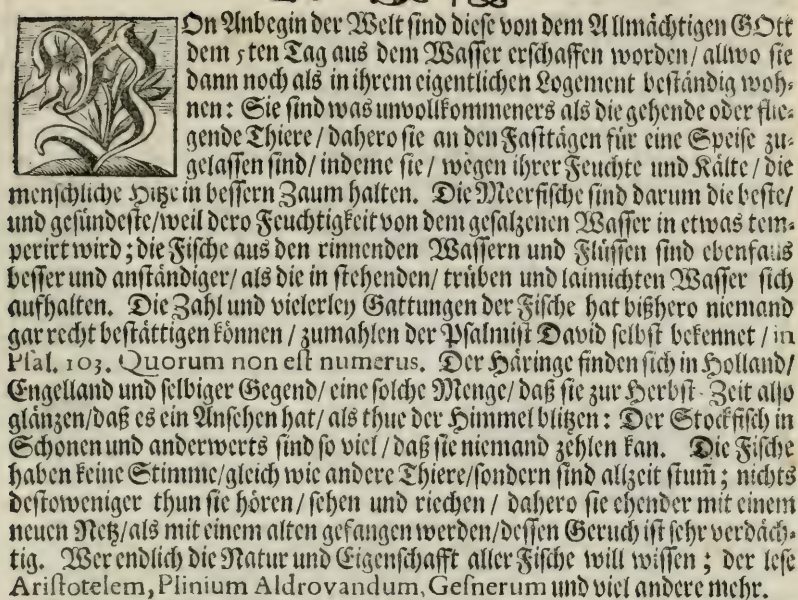 VOn Anbegin der Welt sind diese von dem Allmächtigen GOtt
dem 5ten Tag aus dem Wasser erschaffen worden/ allwo sie
dann noch als in ihrem eigentlichen Logement beständig woh-
nen: Sie sind was unvollkommeners als die gehende oder flie-
gende Thiere / dahero sie an den Fasttägen für eine Speise zu-
gelassen sind/ indeme sie / wegen ihrer Feuchte und Kälte / die
menschliche Hitze in bessern Zaum halten. Die Meerfische sind darum die beste/
und gesündeste/weil dero Feuchtigkeit von dem gesalzenen Wasser in etwas tem-
perirt wird; die Fische aus den rinnenden Wassern und Flüssen sind ebenfalls
besser und anständiger/ als die in stehenden/ trüben und laimichten Wasser sich
aufhalten. Die Zahl und vielerley Gattungen der Fische hat bißhero niemand
gar recht bestättigen können / zumahlen der Psalmist David selbst bekennet / in
Psal. 103. Quorum non est numerus. Der Häringe finden sich in Holland/
Engelland und selbiger Gegend/ eine solche Menge/ daß sie zur Herbst-Zeit also
glänzen/daß es ein Ansehen hat/ als thue der Himmel blitzen: Der Stockfisch in
Schonen und anderwerts sind so viel / daß sie niemand zehlen kan. Die Fische
haben keine Stimme/gleich wie andere Thiere/sondern sind allzeit stum̃; nichts
destoweniger thun sie hören / sehen und riechen / dahero sie ehender mit einem
neuen Netz/als mit einem alten gefangen werden/dessen Geruch ist sehr verdäch-
tig. Wer endlich die Natur und Eigenschafft aller Fische will wissen; der lese
Aristotelem, Plinium Aldrovandum, Gesnerum und viel andere mehr.